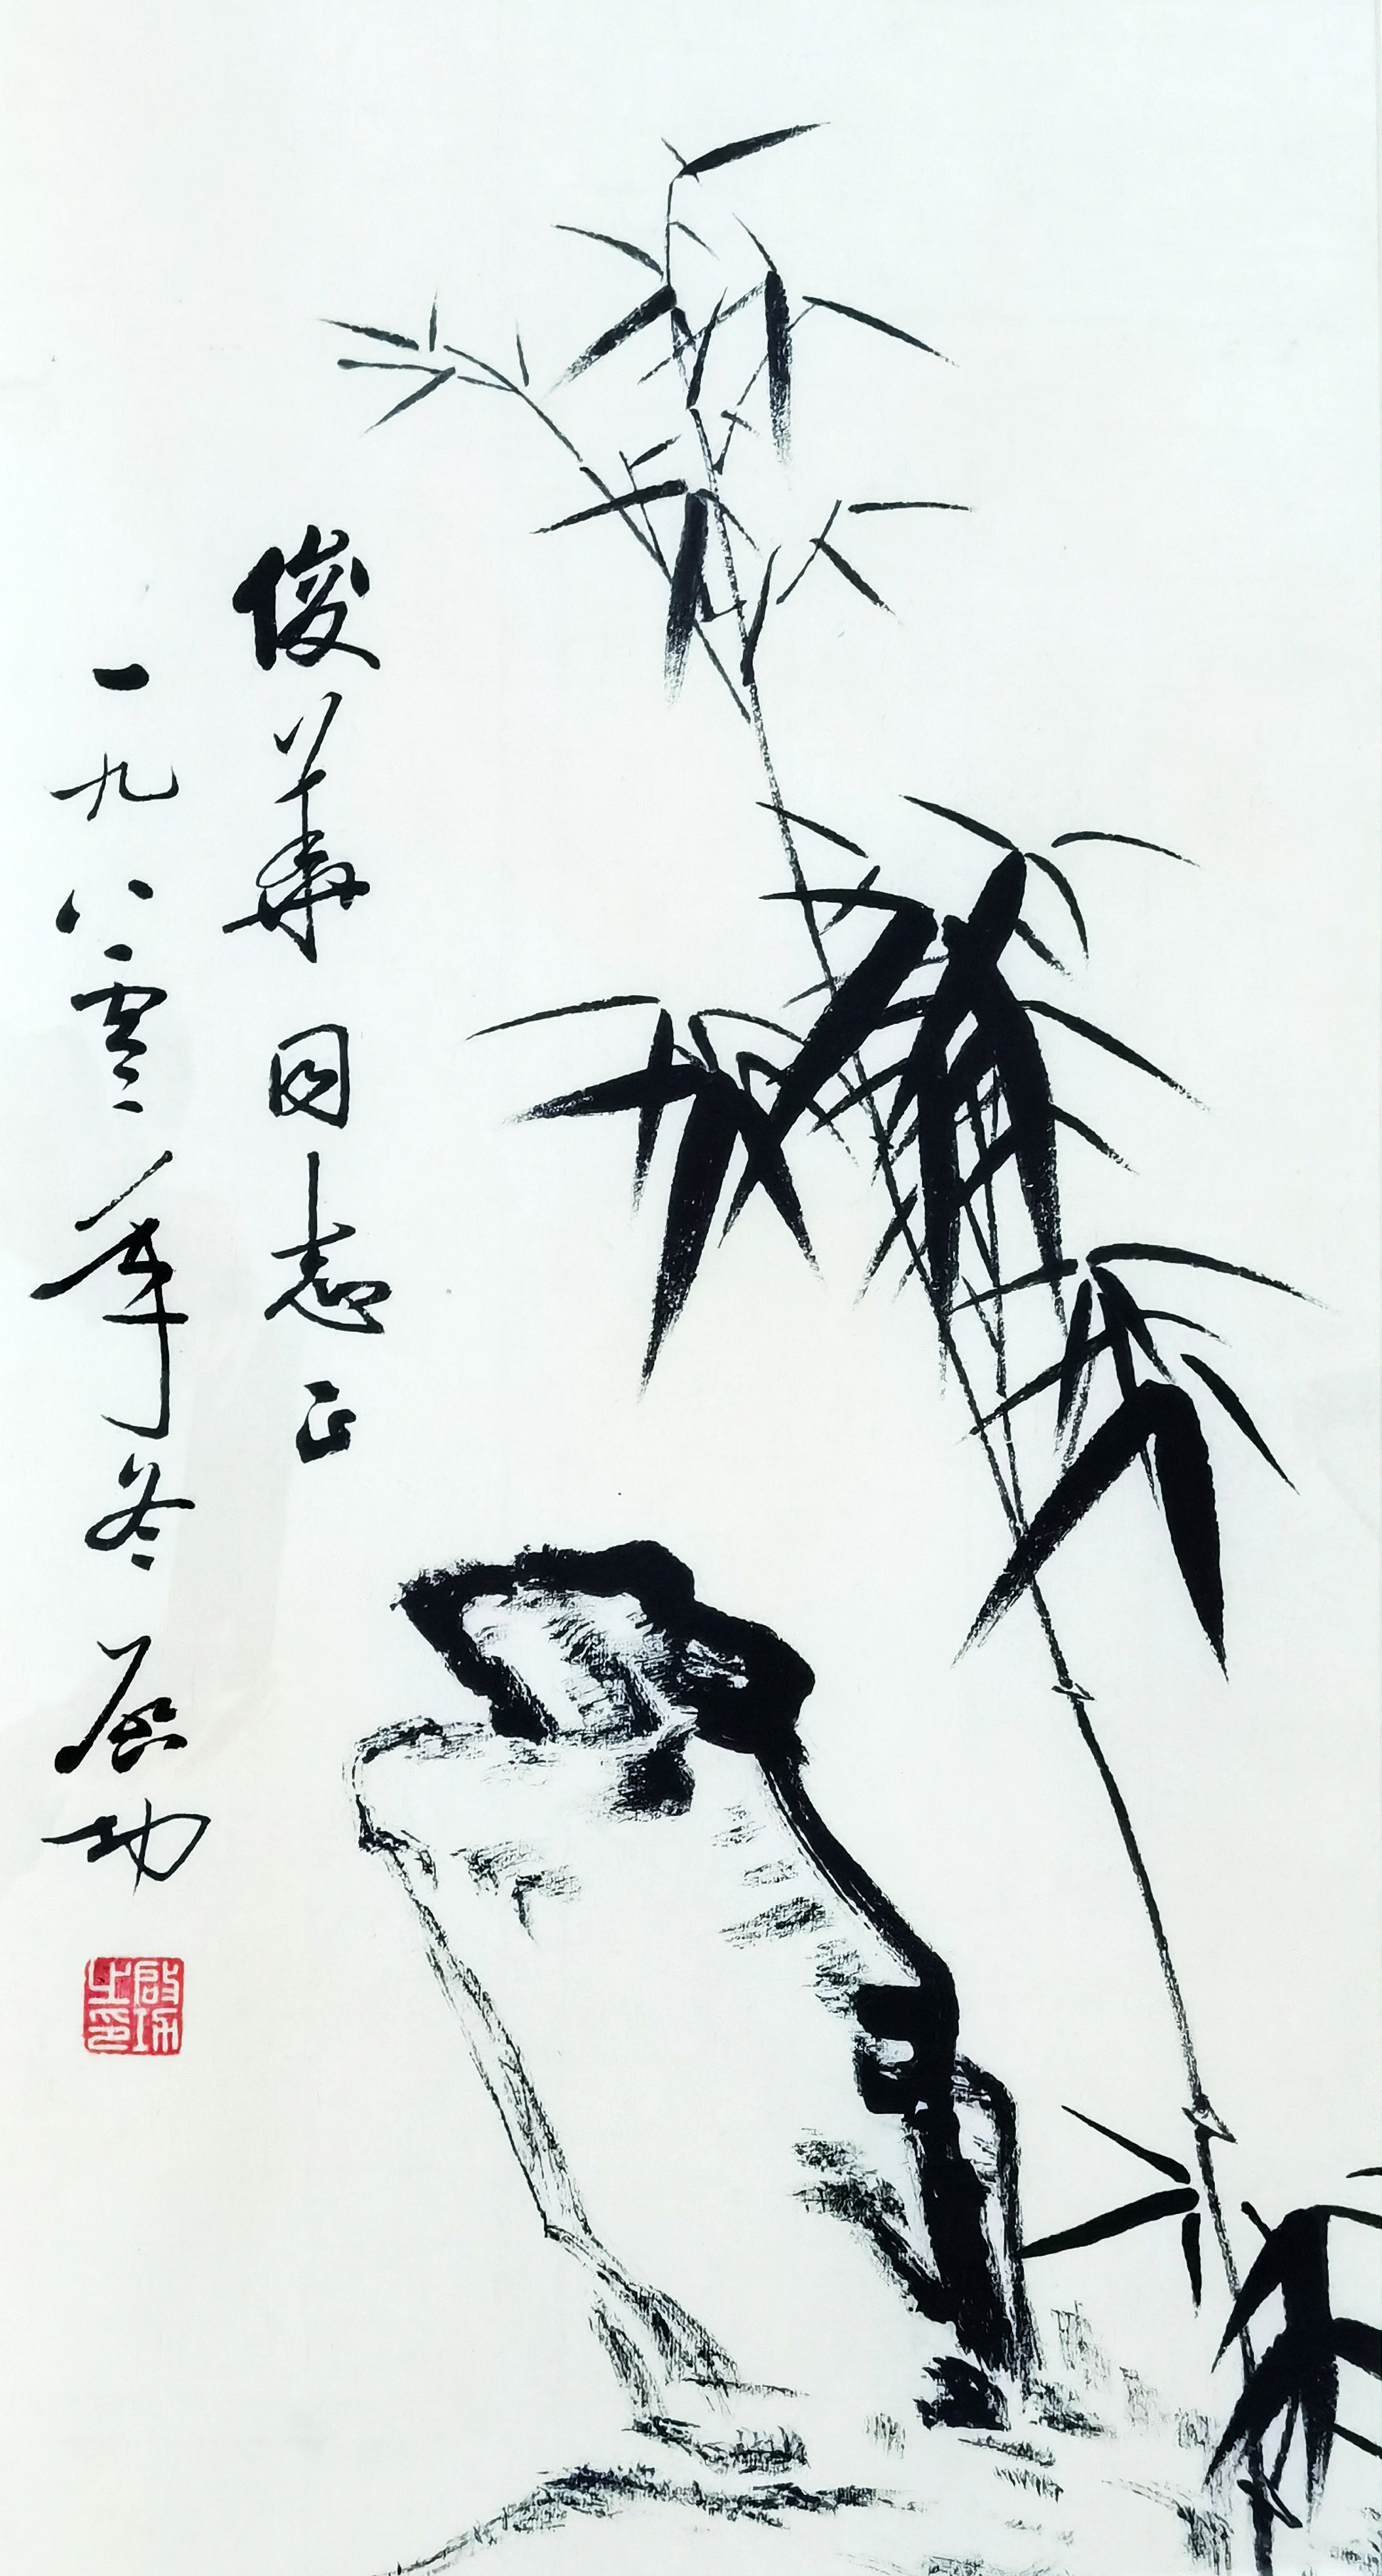 俊華同志正
一九八零年冬 启功
启功之印